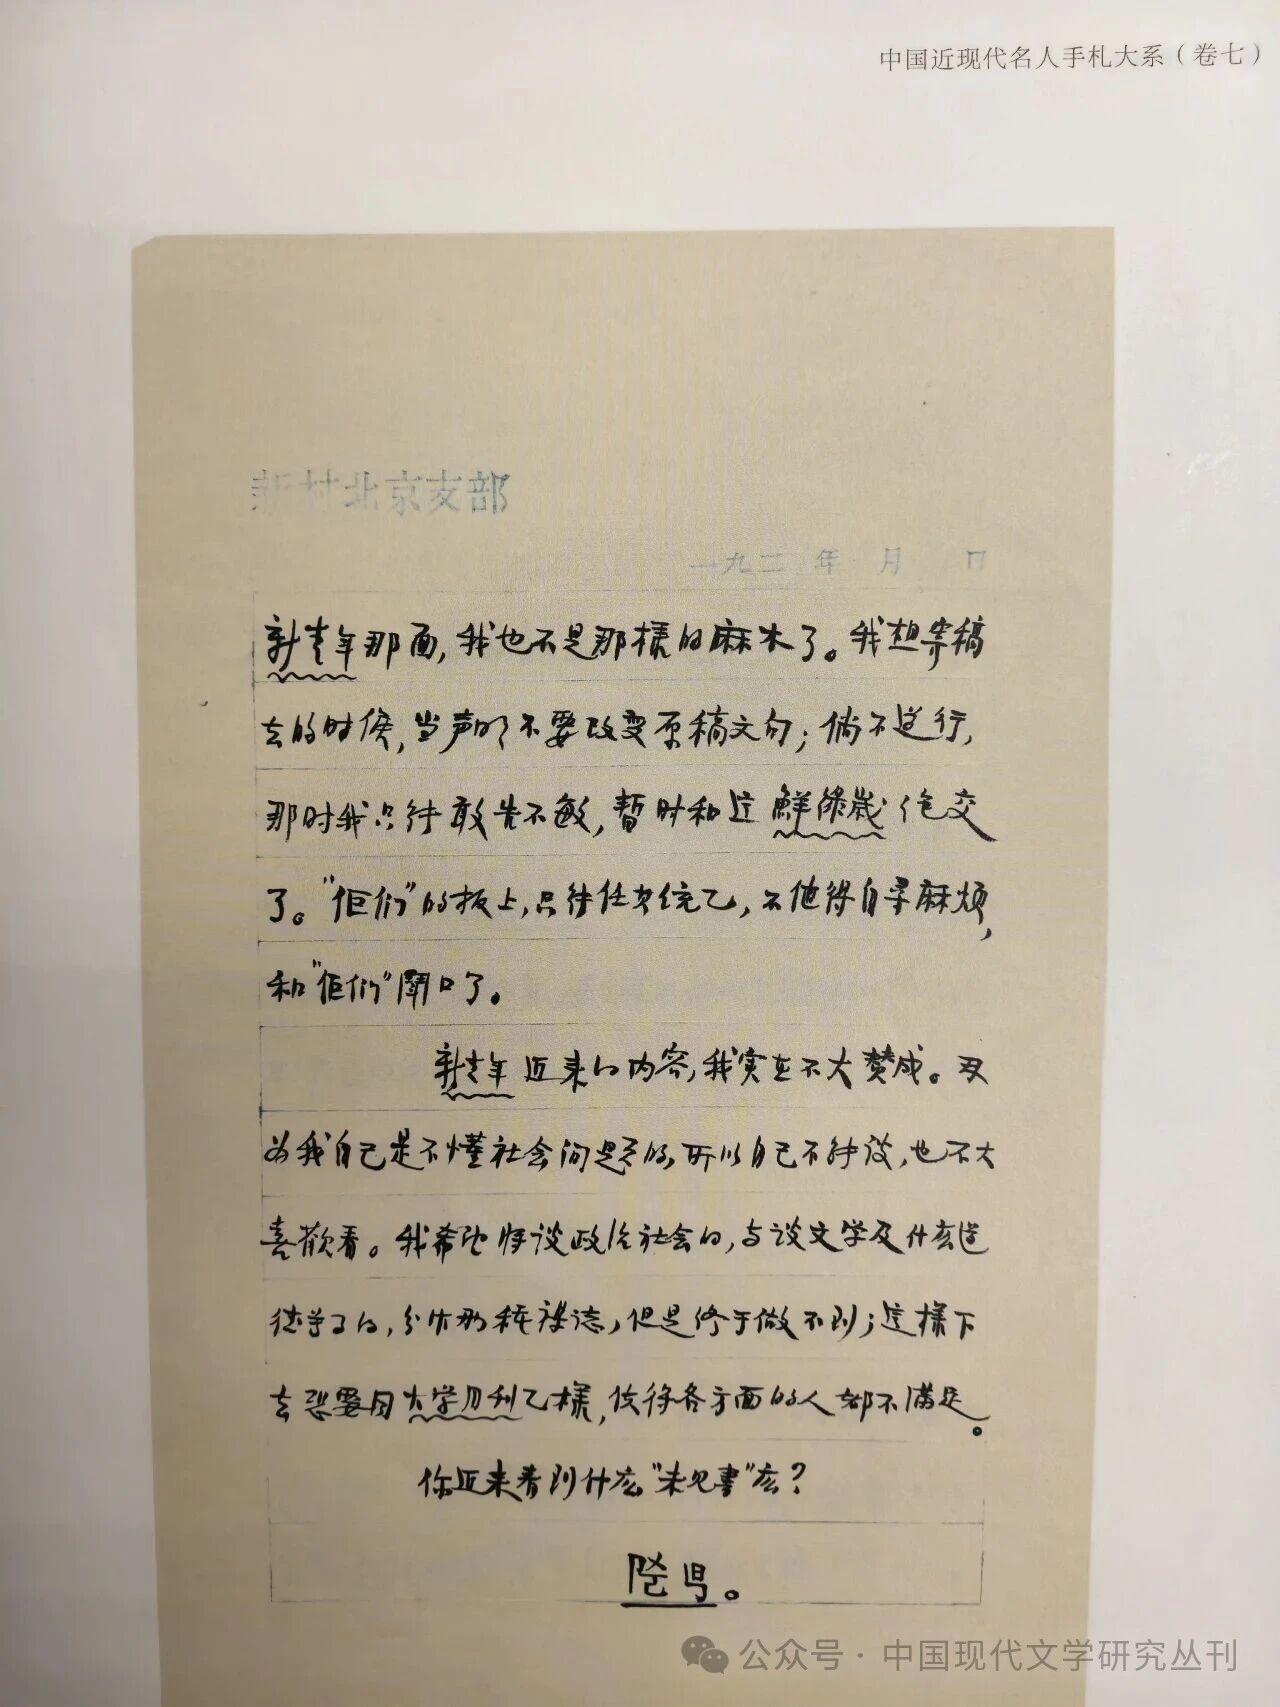 中国近现代名人手札大系（卷七）
新村北京支部
一九二 年 月 日
新青年那面，我也不是那样的麻木了。我想寄稿
去的时候，当声明不要改变原稿文句；倘不道行，
那时我只待敬告不敏，暂时和这鲜绿岁绝交
了。“佢们”的板上，只待任其统乙，不值得自寻麻烦，
和“佢们”闹口了。
新青年近来的内容，我实在不大赞成。因
为我自己是不懂社会问题的，所以自己不能谈，也不大
喜欢看。我希望将谈政治社会的，与谈文学及什么道
德等了的，分作两种杂志，但是终于做不到；这样下
去恐要同大学月刊乙样，使得各方面的人都不满足。
你近来看到什么“未见书”么？
公众号·中国现代文学研究丛刊